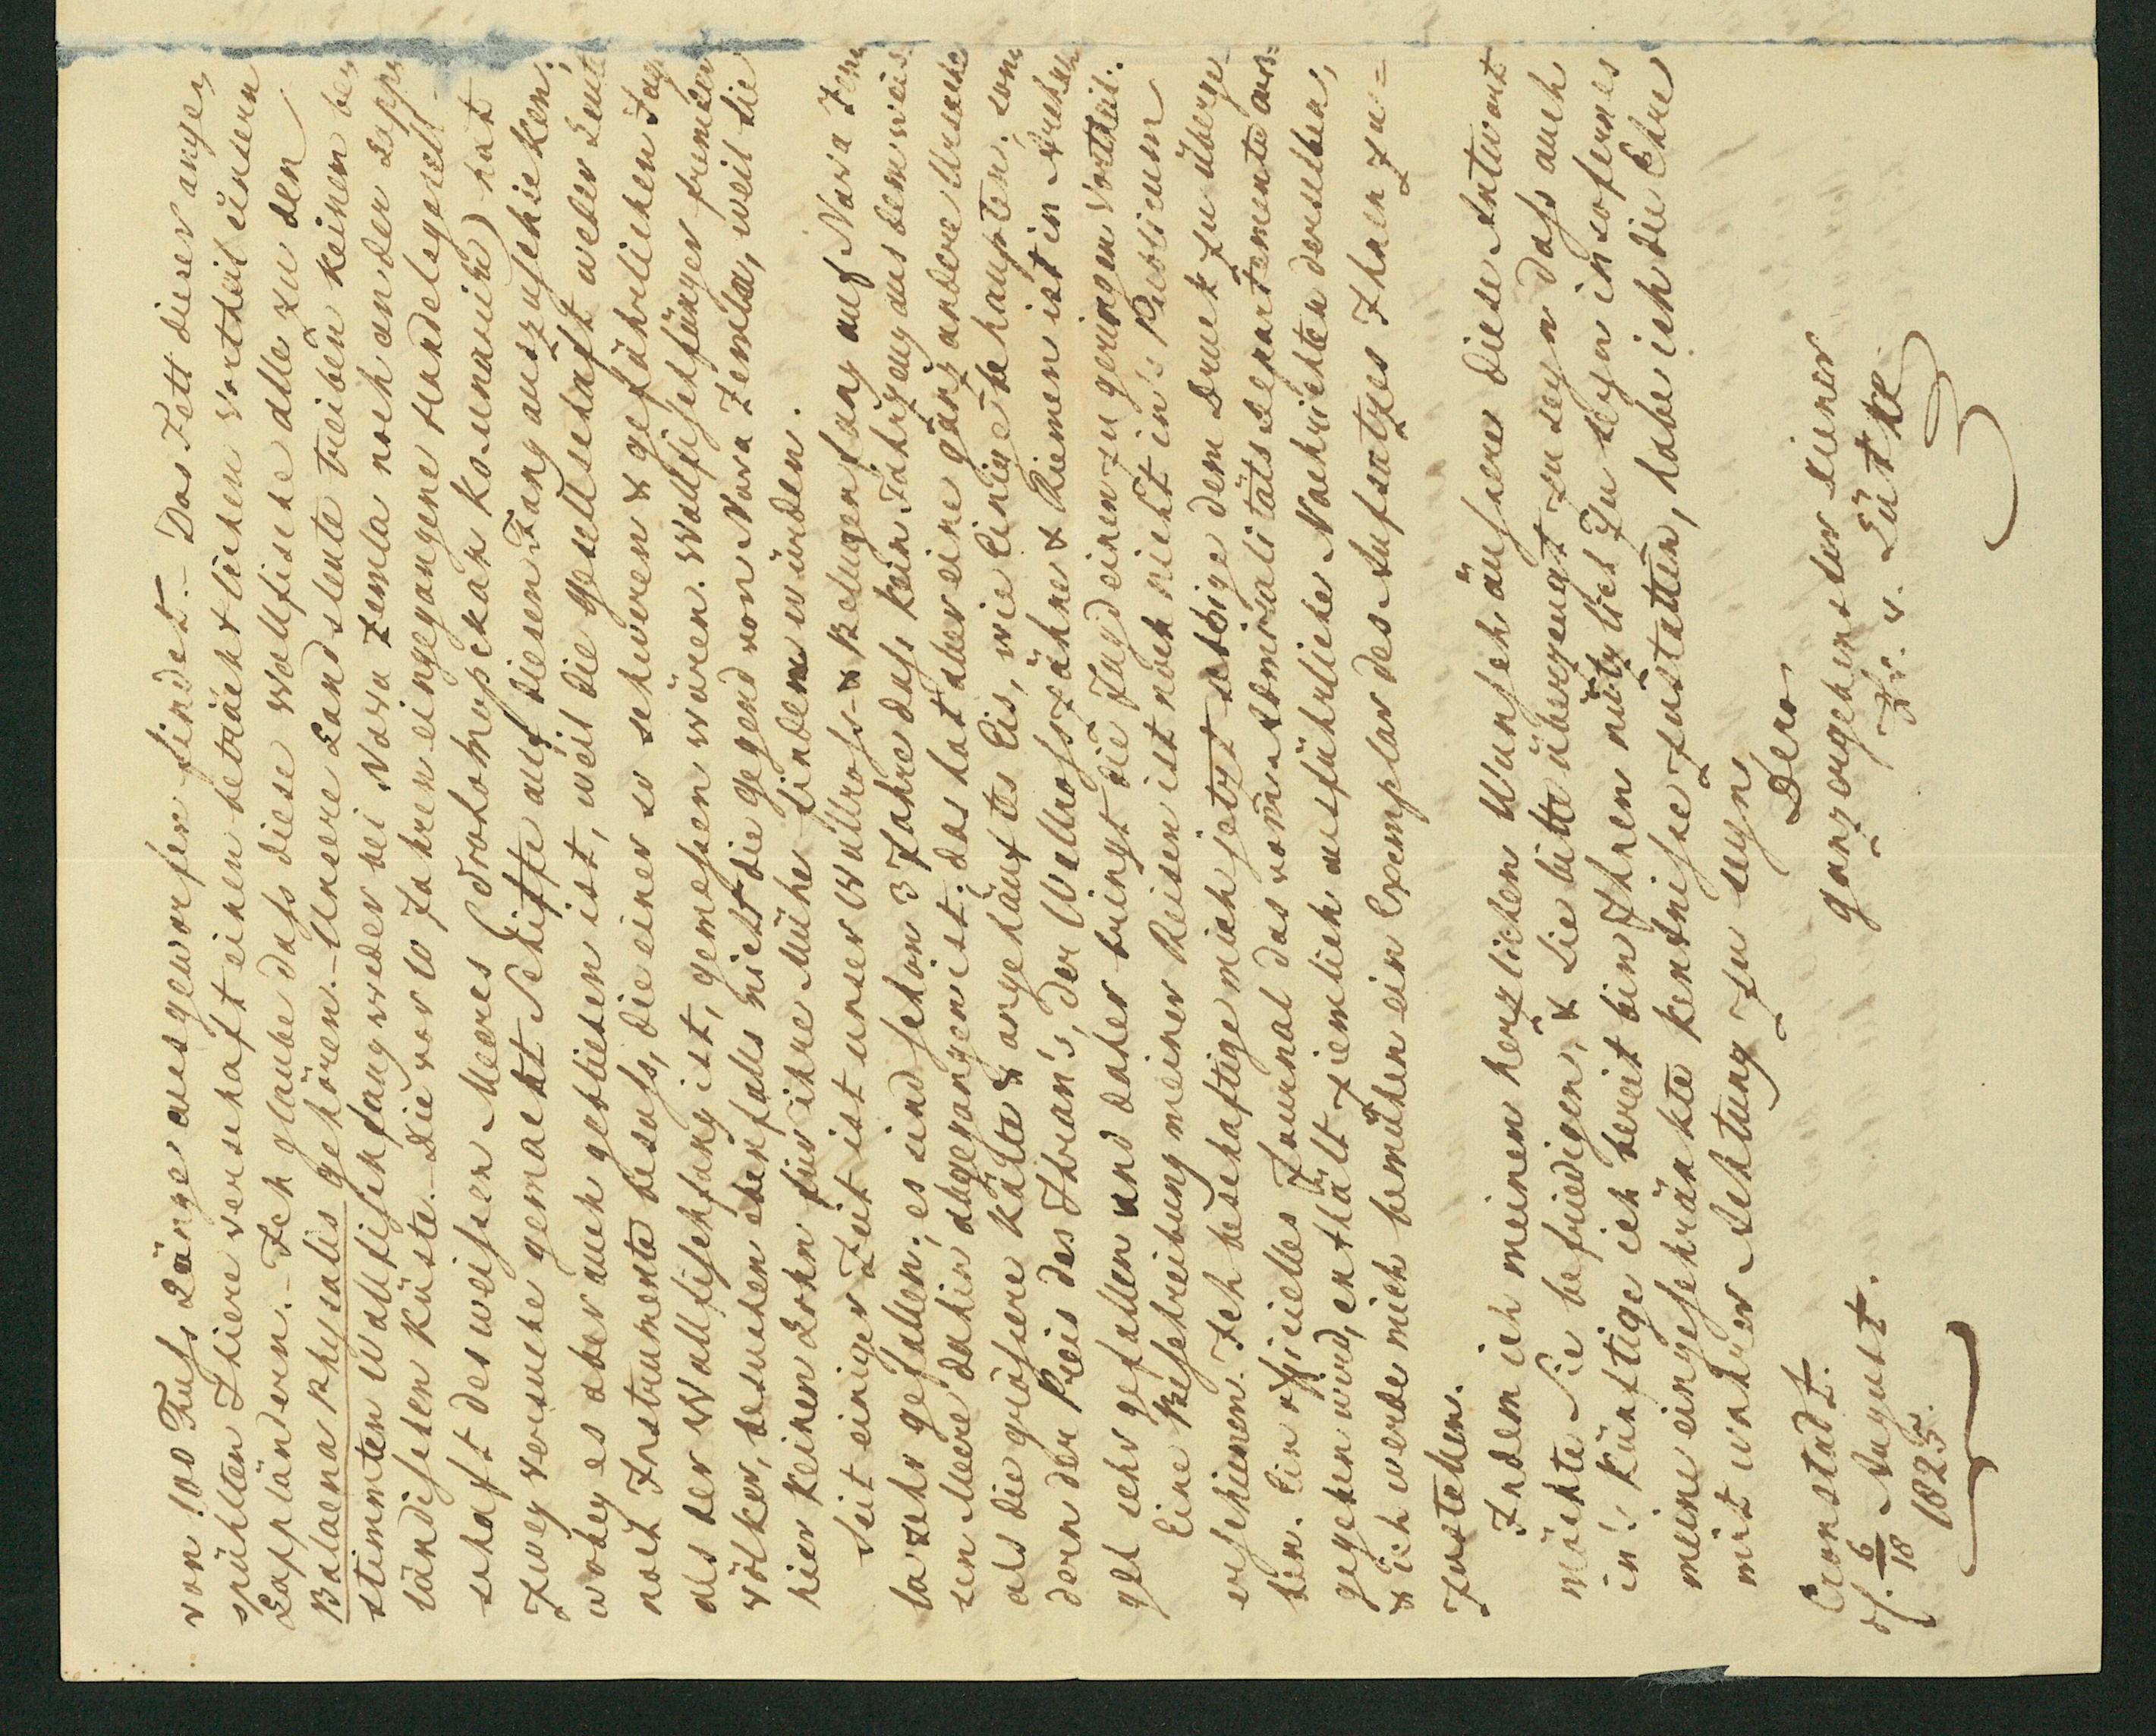 von 100 Fuſs Länge ausgeworfen findet. – Das Fett dieser ange
spühlten Thiere verschaft einen beträchtlichen Vortheil unsern
Lappländern. – Ich glaube daſs diese Wallfische alle zu den
Balaena Physalis gehören. – Unsere Landsleute treiben keinen be
stimmten Wallfischfang weder bei Nova Zemla noch an der Lapp
ländischen Küste. – Die vor 10 Jahren eingegangene Handelsgesell
schaft des weiſsen Meeres ( ) hat
zwey versuche gemacht Schiffe auf diesen Fang auszuschicken;
wobey es aber auch geblieben ist, weil die Gesellschaft weder Leute
noch Instrumente besaſs, die einer so schweren & gefährlichen Jagd
als der Wallfischfang ist, gemeſsen wären. Wallfischfänger fremder
völker, besuchen ebenfalls nicht die gegend von Nova Zemla, weil sie
hier keinen Lohn für ihre Mühe finden würden.
Seit einiger Zeit ist unser Wallroſs- & Belugenfang auf Nova Zem
la sehr gefallen; es sind schon 3 Jahre daſs kein Fahrzeug aus dem weis
sen Meere dahin abgegangen ist; das hat aber eine ganz andere Ursache
als die gröſsere Kälte & angehäuftes Eis, wie Einige behaupten; son
dern der Preis des Thran's, der Wallroſszähne & Riemen ist in Archan
gel sehr gefallen und daher bringt die Jagd einen zu geringen Vortheil.
Eine Beschreibung meiner Reisen ist noch nicht in's Publicum
erschienen. Ich beschäftige mich jetzt selbige dem Druck zu überge-
ben. Ein offizielles Journal das vom Admiralitäts Departemente aus=
gegeben wird, enthält ziemlich ausführliche Nachrichten derselben,
& ich werde mich bemühen ein Exemplar des Aufsatzes Ihnen zu=
zustellen.
Indem ich meinen herzlichen Wunsch äuſsere diese Antwort
möchte Sie befriedigen, & Sie bitte überzeugt zu seyn daſs auch
in's künftige ich bereit bin Ihnen nützlich zu seyn in sofern es
meine eingeschränkte kentniſse zustatten, habe ich die Ehre
mit wahrer Achtung zu seyn
Dero
ganz ergebenster Diener
Fr. v. Lütke
Cronstadt.
d. 6/18 August.
1825.